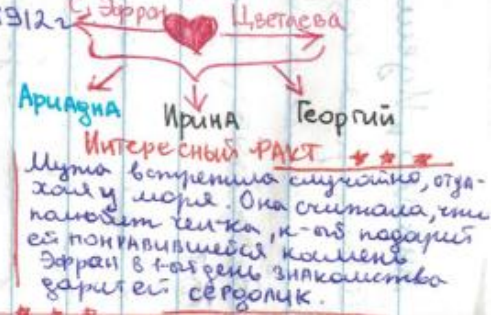 1912 г С. Эфрон Цветаева
Ариадна Ирина Георгий
Интересный ФАКТ
Мужа встретила случайно, отды-
хая у моря. Она считала, что
полюбит чел-ка, к-ый подарит
ей понравившейся камень
Эфрон в 1-ый день знакомства
дарит ей сердолик.